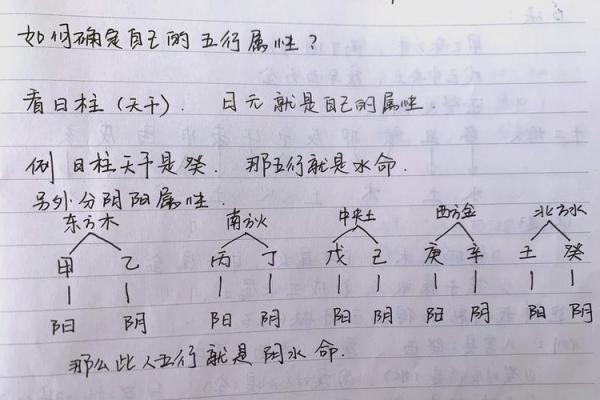 如何确定自己的五行属性？
看日柱（天干）．日元就是自己的属性．
例 日柱天干是癸．那五行就是水命．
另外分阴阳属性．
东方木 南方火 中央土 西方金 北方水
甲 乙 丙 丁 戊 己 庚 辛 壬 癸
阳 阴 阳 阴 阳 阴 阳 阴 阳 阴
那么此人五行就是阴水命．